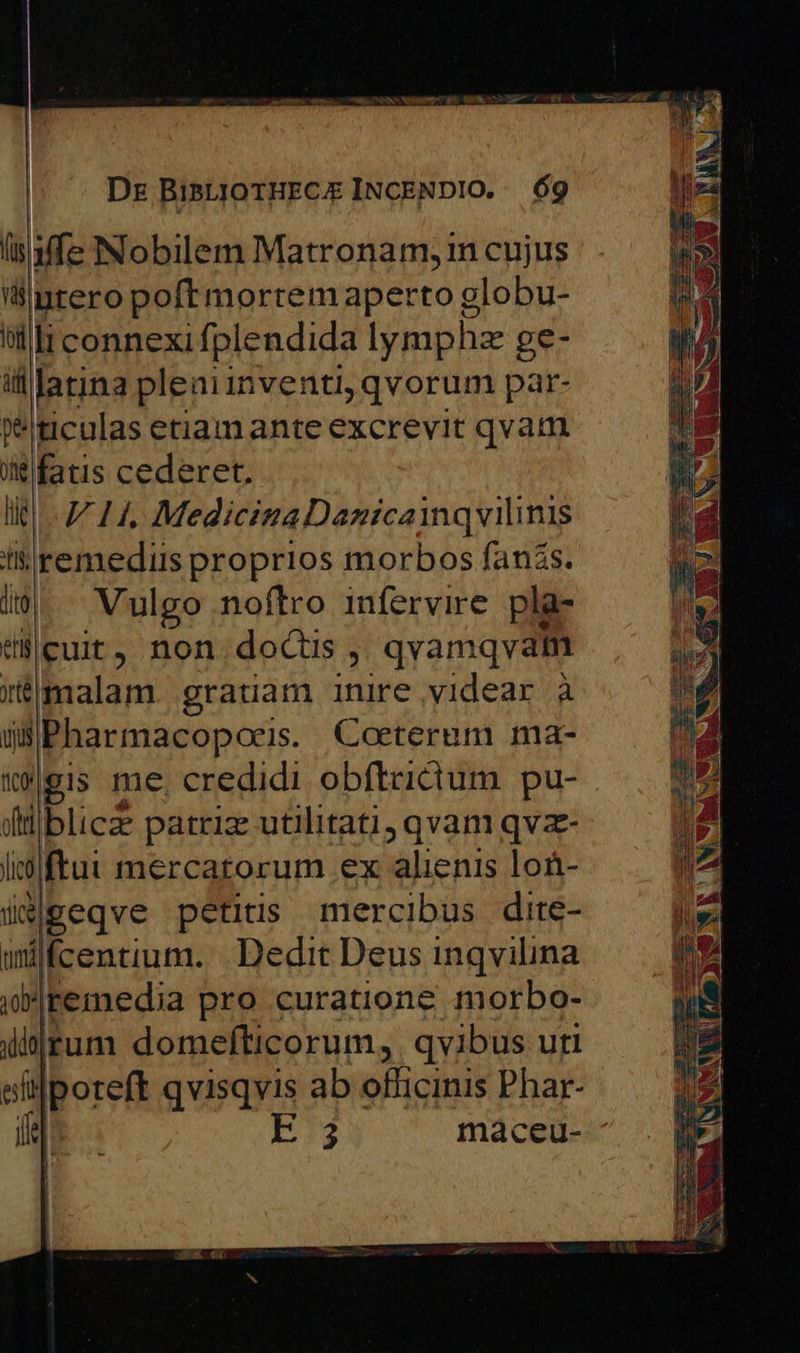 DE BIBLIOTHECÆ INCENDIO. 69
iſſe Nobilem Matronam, in cujus
utero poſt mortem aperto globu-
li connexi ſplendida lymphæ ge-
latina pleni inventi, qvorum par-
ticulas etiam ante excrevit qvam
fatis cederet.
VII. Medicina Danica inqvilinis
remediis proprios morbos ſanās.
Vulgo noſtro inſervire pla-
cuit, non doctis, qvamqvam
malam gratiam inire videar à
Pharmacopœis. Cœterum ma-
gis me credidi obſtrictum pu-
blicæ patriæ utilitati, qvam qvæ-
ſtui mercatorum ex alienis lon-
geqve petitis mercibus dite-
ſcentium. Dedit Deus inqvilina
remedia pro curatione morbo-
rum domeſticorum, qvibus uti
poteſt qvisqvis ab officinis Phar-
E 3 maceu-